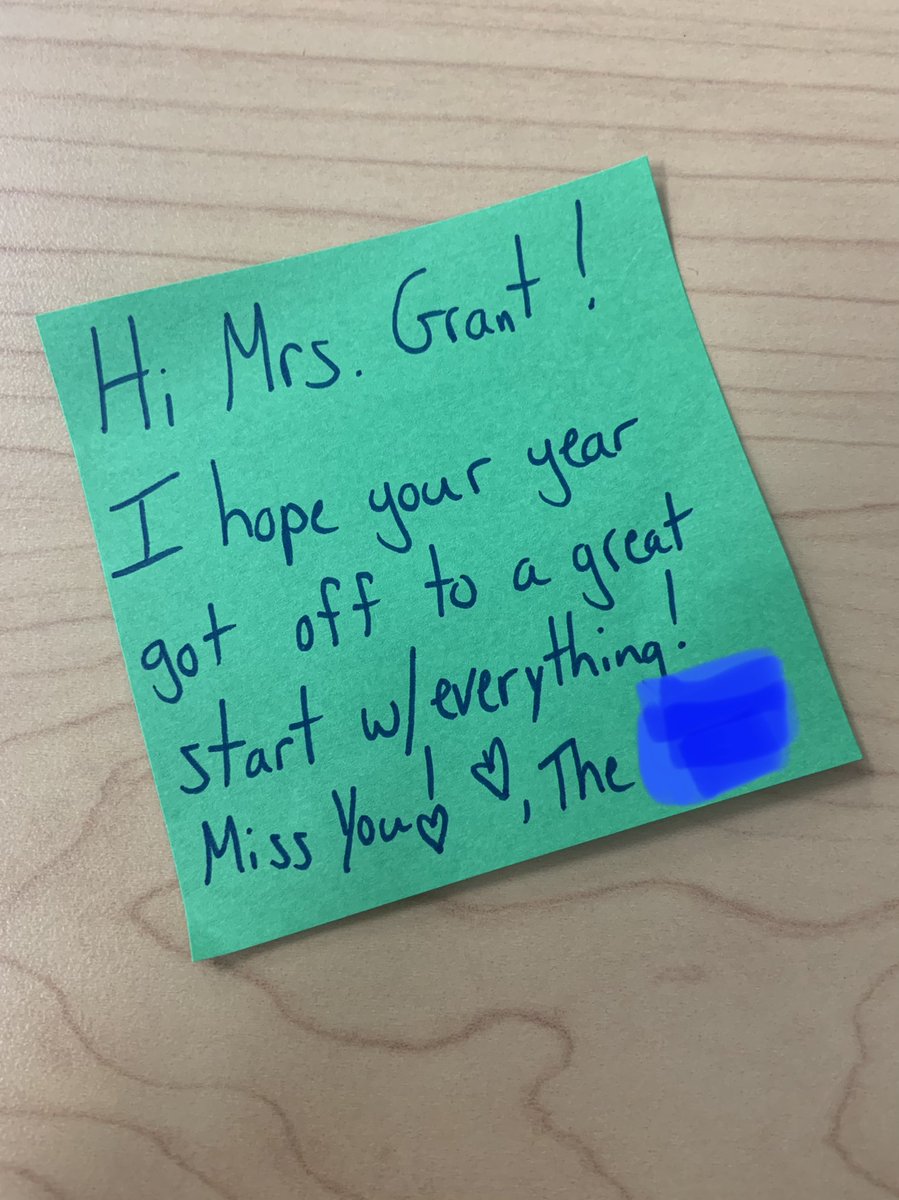 Hi Mrs. Grant!
I hope your year
got off to a great
start w/everything!
Miss You! ♡ ♡, The